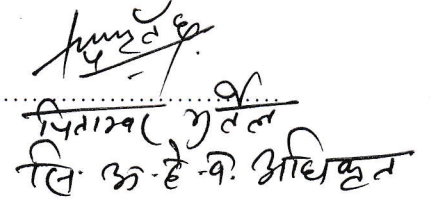 पिताम्बर भुर्तेल
सि. अ. हे. व. अधिकृत